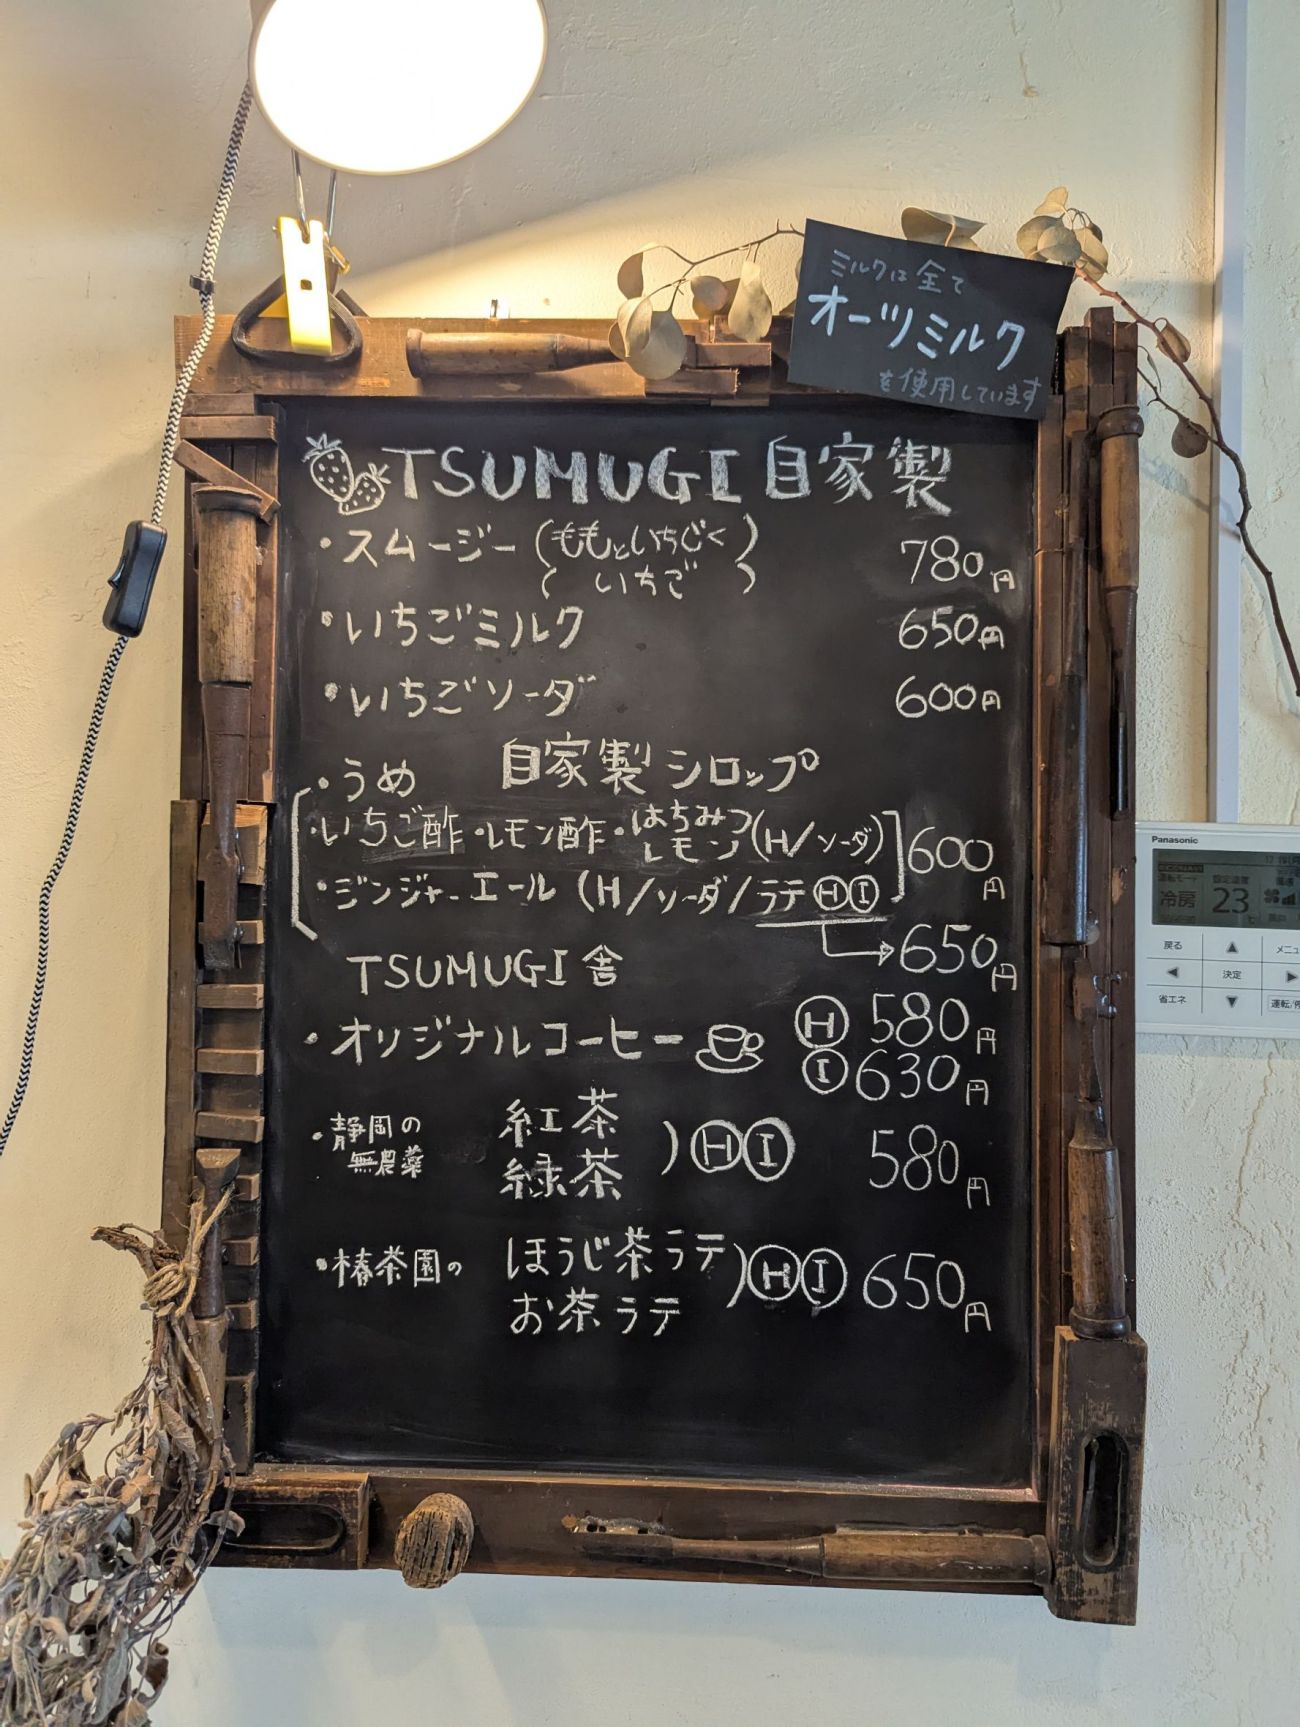 ミルクは全て
オーツミルク
を使用しています
TSUMUGI 自家製
・スムージー (ももといちじく)
(いちご) 780円
・いちごミルク 650円
・いちごソーダ 600円
自家製シロップ
・うめ
・いちご酢 ・レモン酢 ・はちみつレモン (H/ソーダ) 600円
・ジンジャーエール (H/ソーダ/ラテ Ⓗ Ⓘ)
→650円
TSUMUGI舎
・オリジナルコーヒー Ⓗ 580円
Ⓘ 630円
・静岡の無農薬 紅茶
緑茶 ) Ⓗ Ⓘ 580円
・椿茶園の ほうじ茶ラテ
お茶ラテ ) Ⓗ Ⓘ 650円
Panasonic
運転モード 設定温度 風速
冷房 23℃
戻る ▲ メニュ
◀ 決定 ▶
省エネ ▼ 運転/停